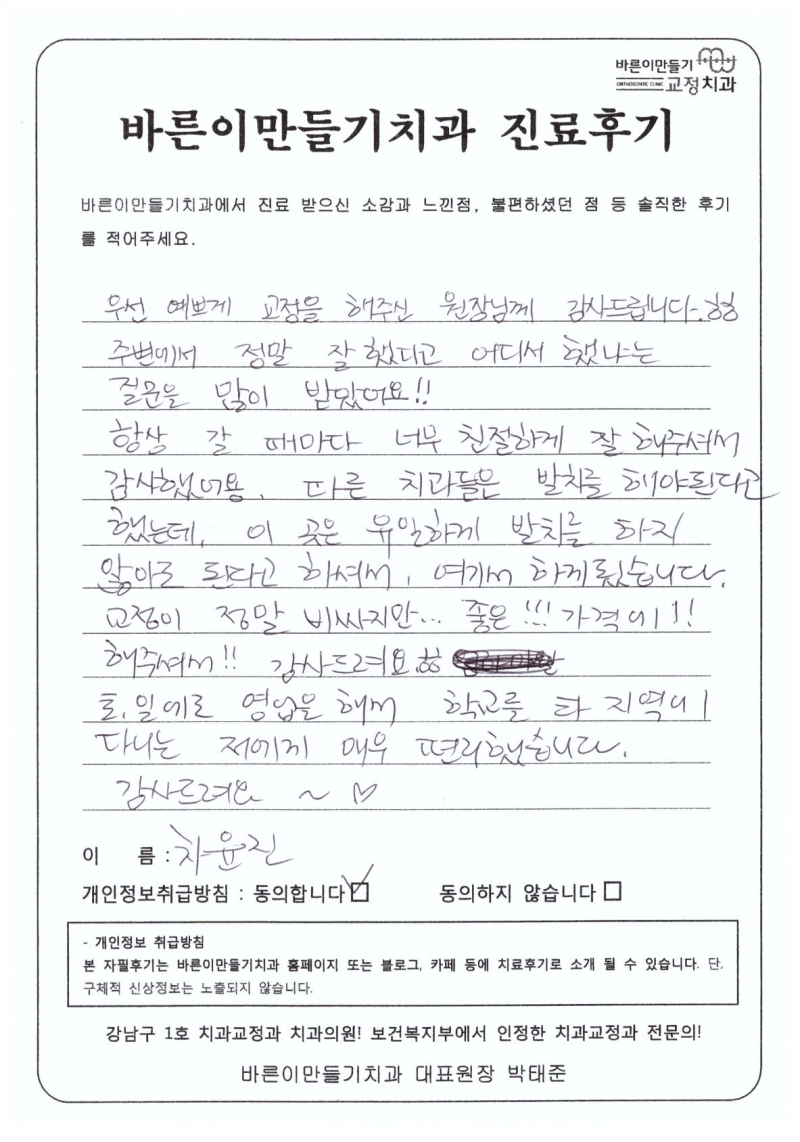 바른이만들기
ORTHODONTIC CLINIC 교정치과
바른이만들기치과 진료후기
바른이만들기치과에서 진료 받으신 소감과 느낀점, 불편하셨던 점 등 솔직한 후기
를 적어주세요.
우선 예쁘게 교정을 해주신 원장님께 감사드립니다.ㅎㅎ
주변에서 정말 잘했다고 어디서 했냐는
질문을 많이 받았어요!!
항상 갈 때마다 너무 친절하게 잘 해주셔서
감사했어용. 따른 치과들은 발치를 해야된다고
했는데, 이 곳은 유일하게 발치를 하지
않아도 된다고 하셔서, 여기서 하게됬습니다.
교정이 정말 비싸지만... 좋은!!! 가격에!!
해주셔서!! 감사드려요ㅎㅎ
토,일에도 영업을 해서 학교를 타 지역에
다니는 저에게 매우 편리했습니다.
감사드려요 ~ ♡
이 름 : 차윤진
개인정보취급방침 : 동의합니다 ☑ 동의하지 않습니다 □
- 개인정보 취급방침
본 자필후기는 바른이만들기치과 홈페이지 또는 블로그, 카페 등에 치료후기로 소개 될 수 있습니다. 단,
구체적 신상정보는 노출되지 않습니다.
강남구 1호 치과교정과 치과의원! 보건복지부에서 인정한 치과교정과 전문의!
바른이만들기치과 대표원장 박태준